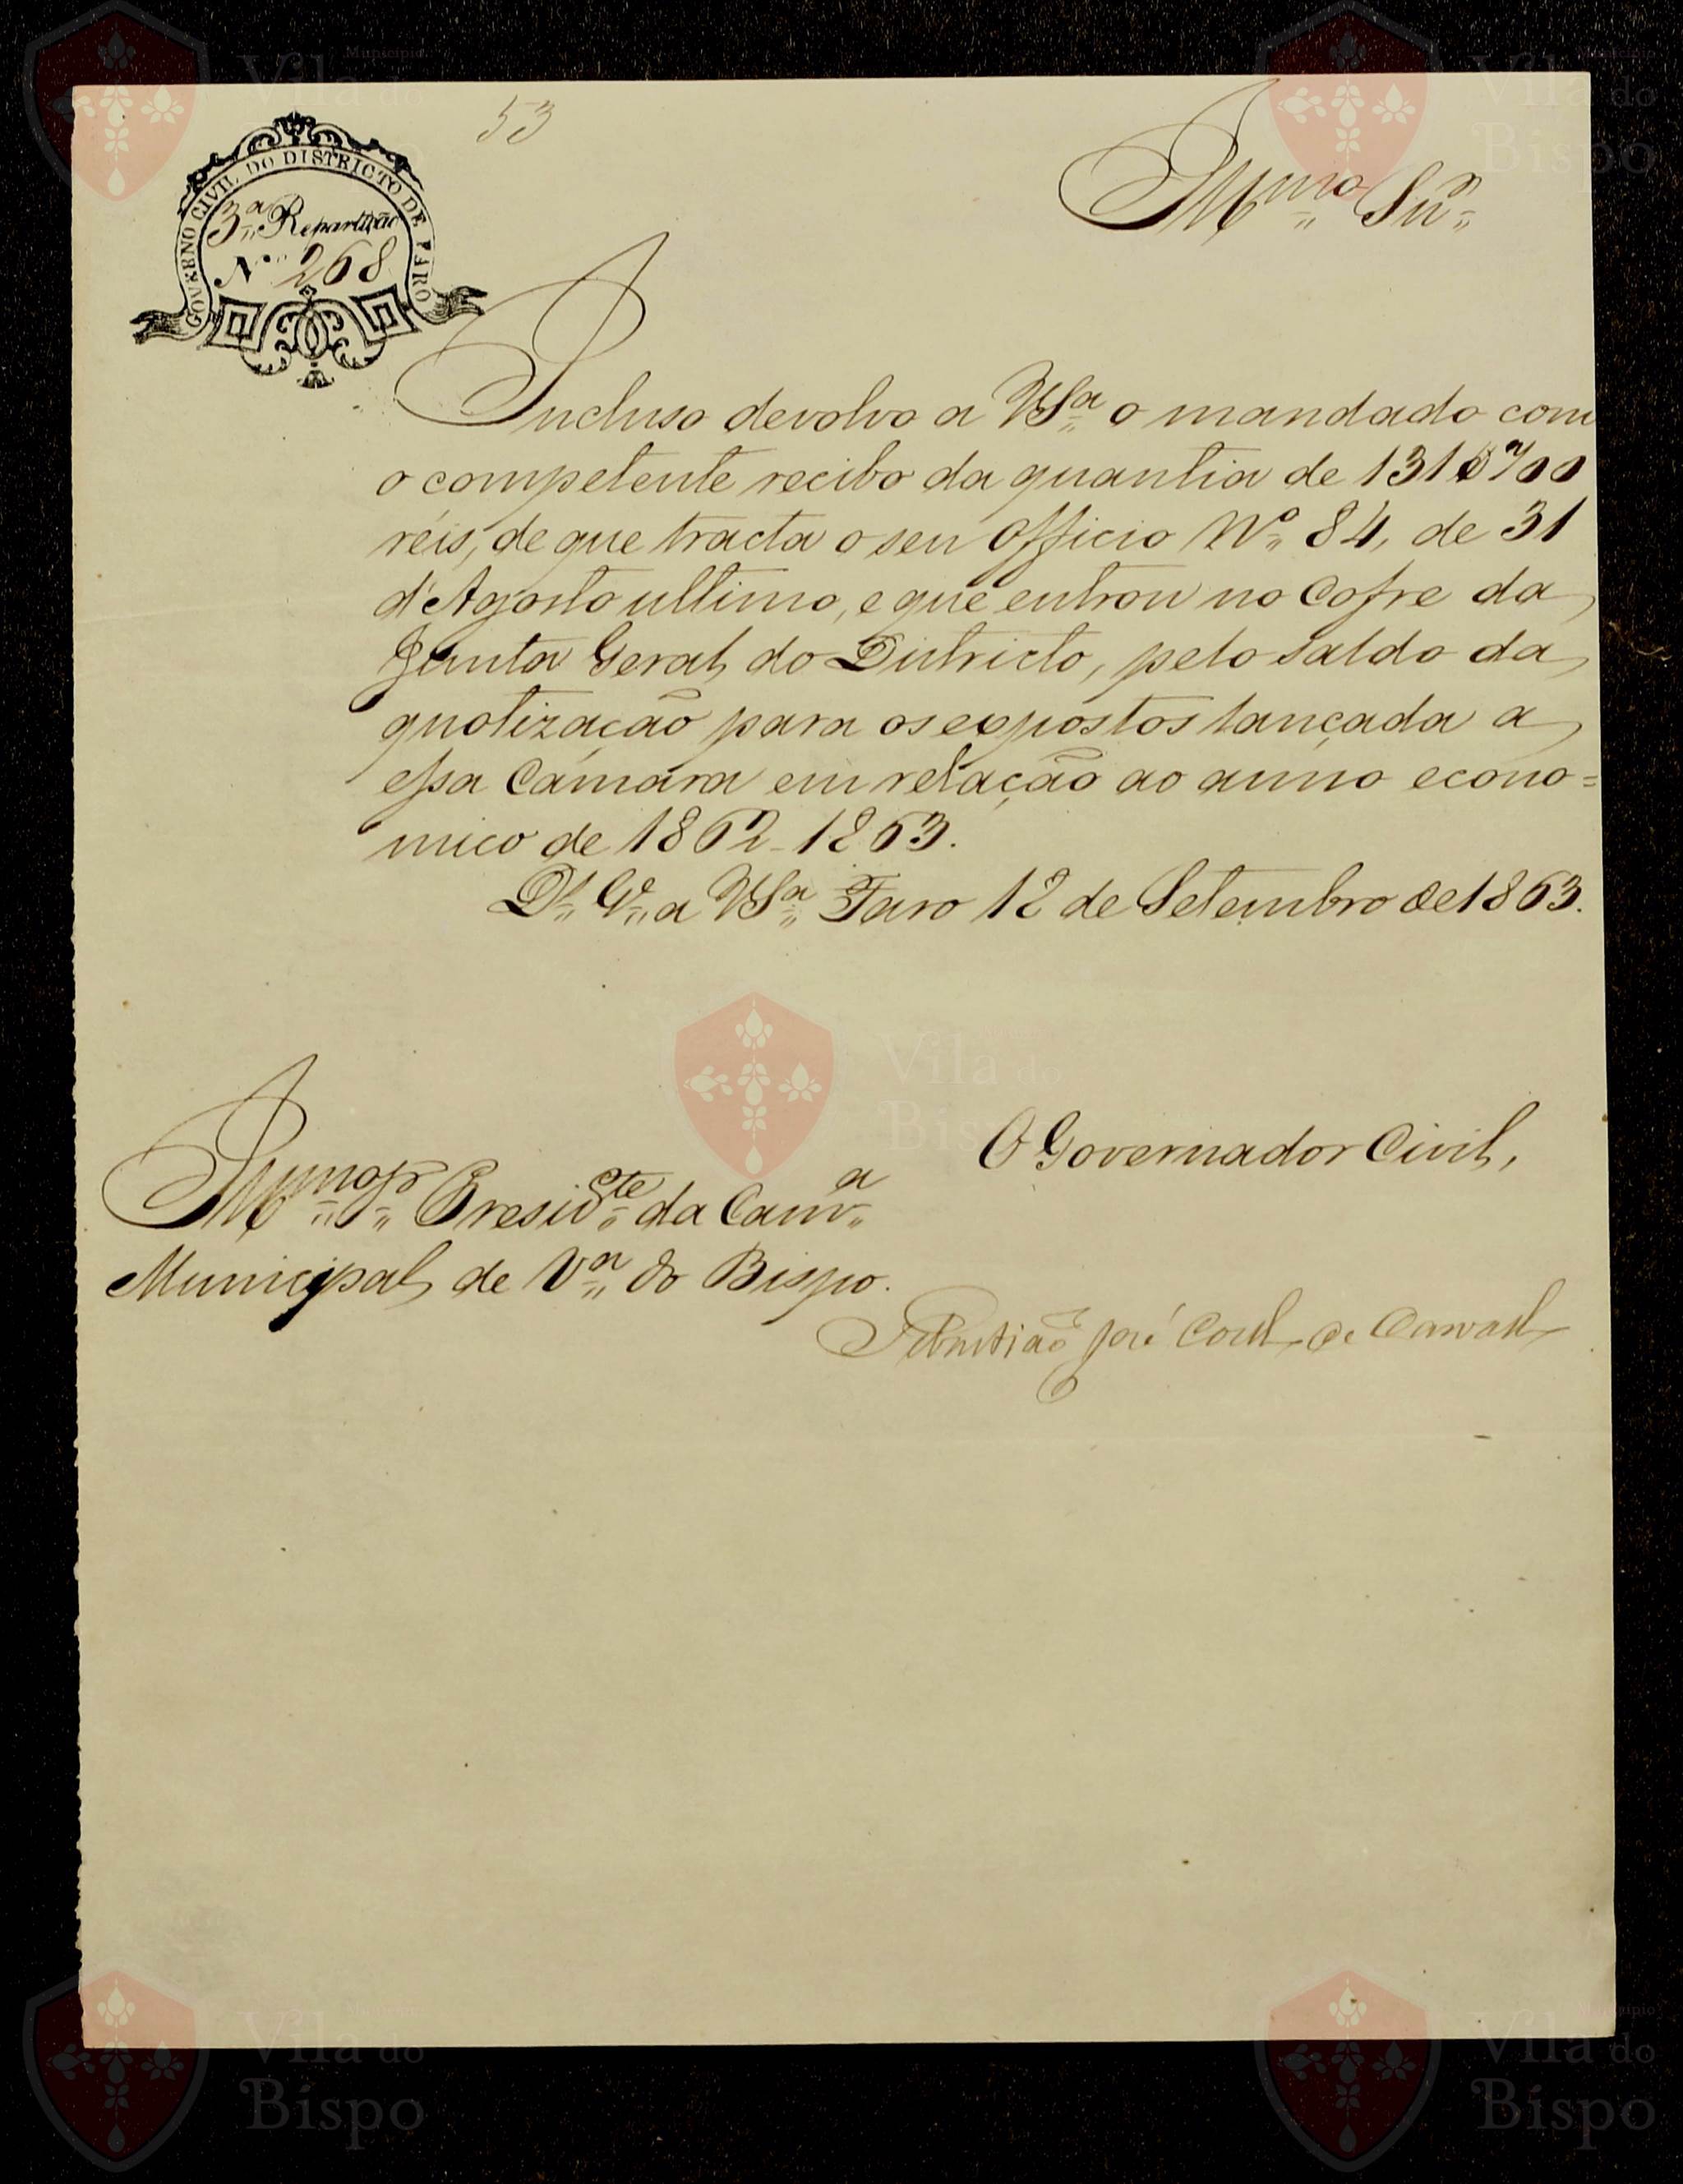 53
GOVERNO CIVIL DO DISTRICTO DE FARO
3.ª Repartição
N.º 268
Ill.mo Snr.
Incluso devolvo a VS.ª o mandado com
o competente recibo da quantia de 131$700
réis, de que tracta o seu officio Nº 84, de 31
d'Agosto ultimo, e que entrou no Cofre da
Junta Geral do Districto, pelo saldo da
quotização para os expostos lançada a
essa Camara em relação ao anno econo=
mico de 1862-1863.
D.s G.e a VS.ª Faro 12 de Setembro de 1863.
O Governador Civil,
Ill.mo Sr. Presid.te da Cam.ª
Municipal de V.ª do Bispo.
Sebastião José de
Município
Vila do
Bispo